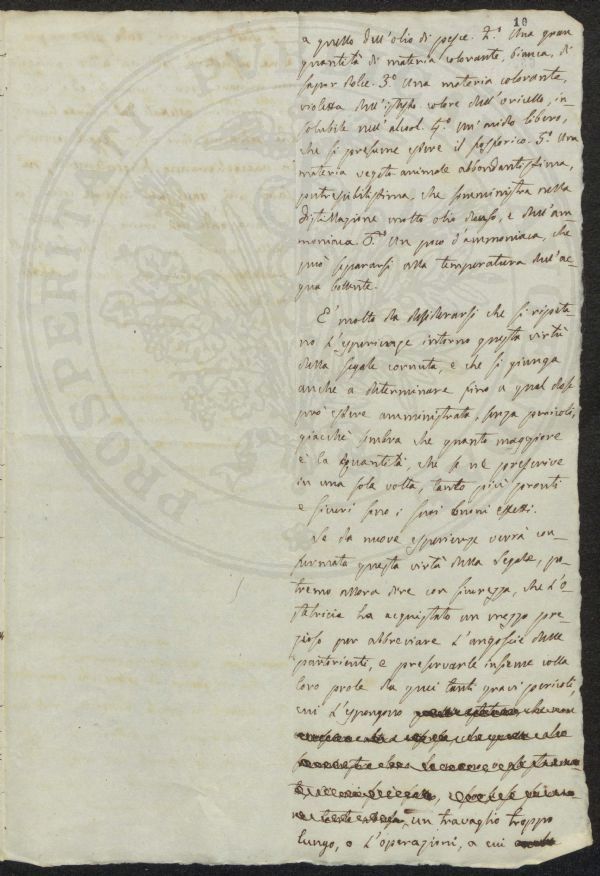 10
a quello dell'olio di pesce. 2.° Una gran
quantità di materia colorante, bianca, di
sapor dolce. 3.° Una materia colorante,
violetta dell'istesso colore dell'oricello, in-
solubile nell'alcool. 4.° Un'acido libero,
che si presume essere il fosforico. 5.° Una
materia vegeto animale abbondantissima,
putrescibilissima, che somministra nella
distillazione molto olio denso, e dell'am-
moniaca. 6.° Un poco d'ammoniaca, che
può separarsi alla temperatura dell'ac-
qua bollente.
E' molto da desiderarsi che si ripeta-
no l'esperienze intorno questa virtù
della segale cornuta, e che si giunga
anche a determinare fino a qual dose
può essere amministrata, senza pericoli,
giacchè sembra che quanto maggiore
è la quantità, che se ne prescrive
in una sola volta, tanto più pronti
e sicuri sono i suoi buoni effetti.
Se da nuove esperienze verrà con-
fermata questa virtù della Segale, po-
tremo allora dire con sicurezza, che l'o-
stetricia ha acquistato un mezzo pre-
zioso per abbreviare l'angoscie delle
partorienti, e preservarle insieme colla
loro prole da quei tanti gravi pericoli,
cui l'espongono
un travaglio troppo
lungo, o l'operazioni, a cui
PROSPERITATI PUBL